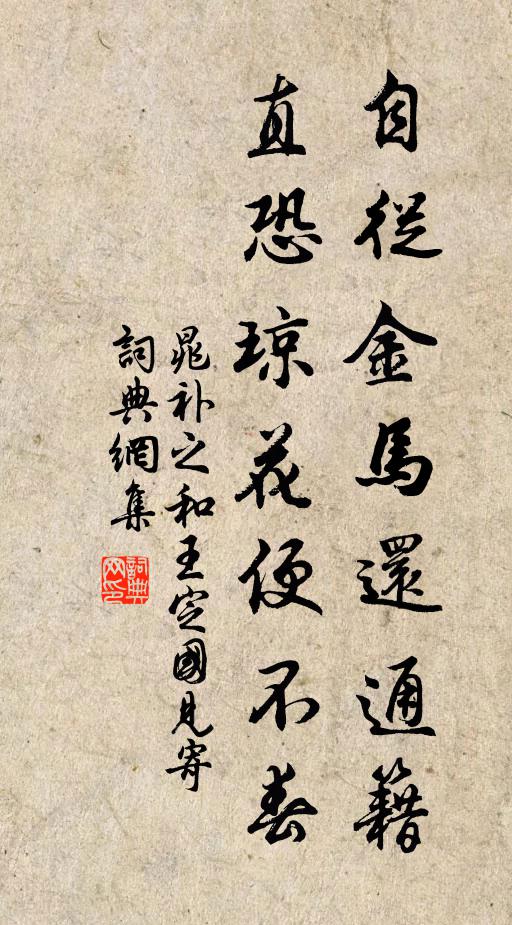 自從金馬還通籍
直恐琼花便不春
晁补之和王定國見寄
詞典網集
詞典網印